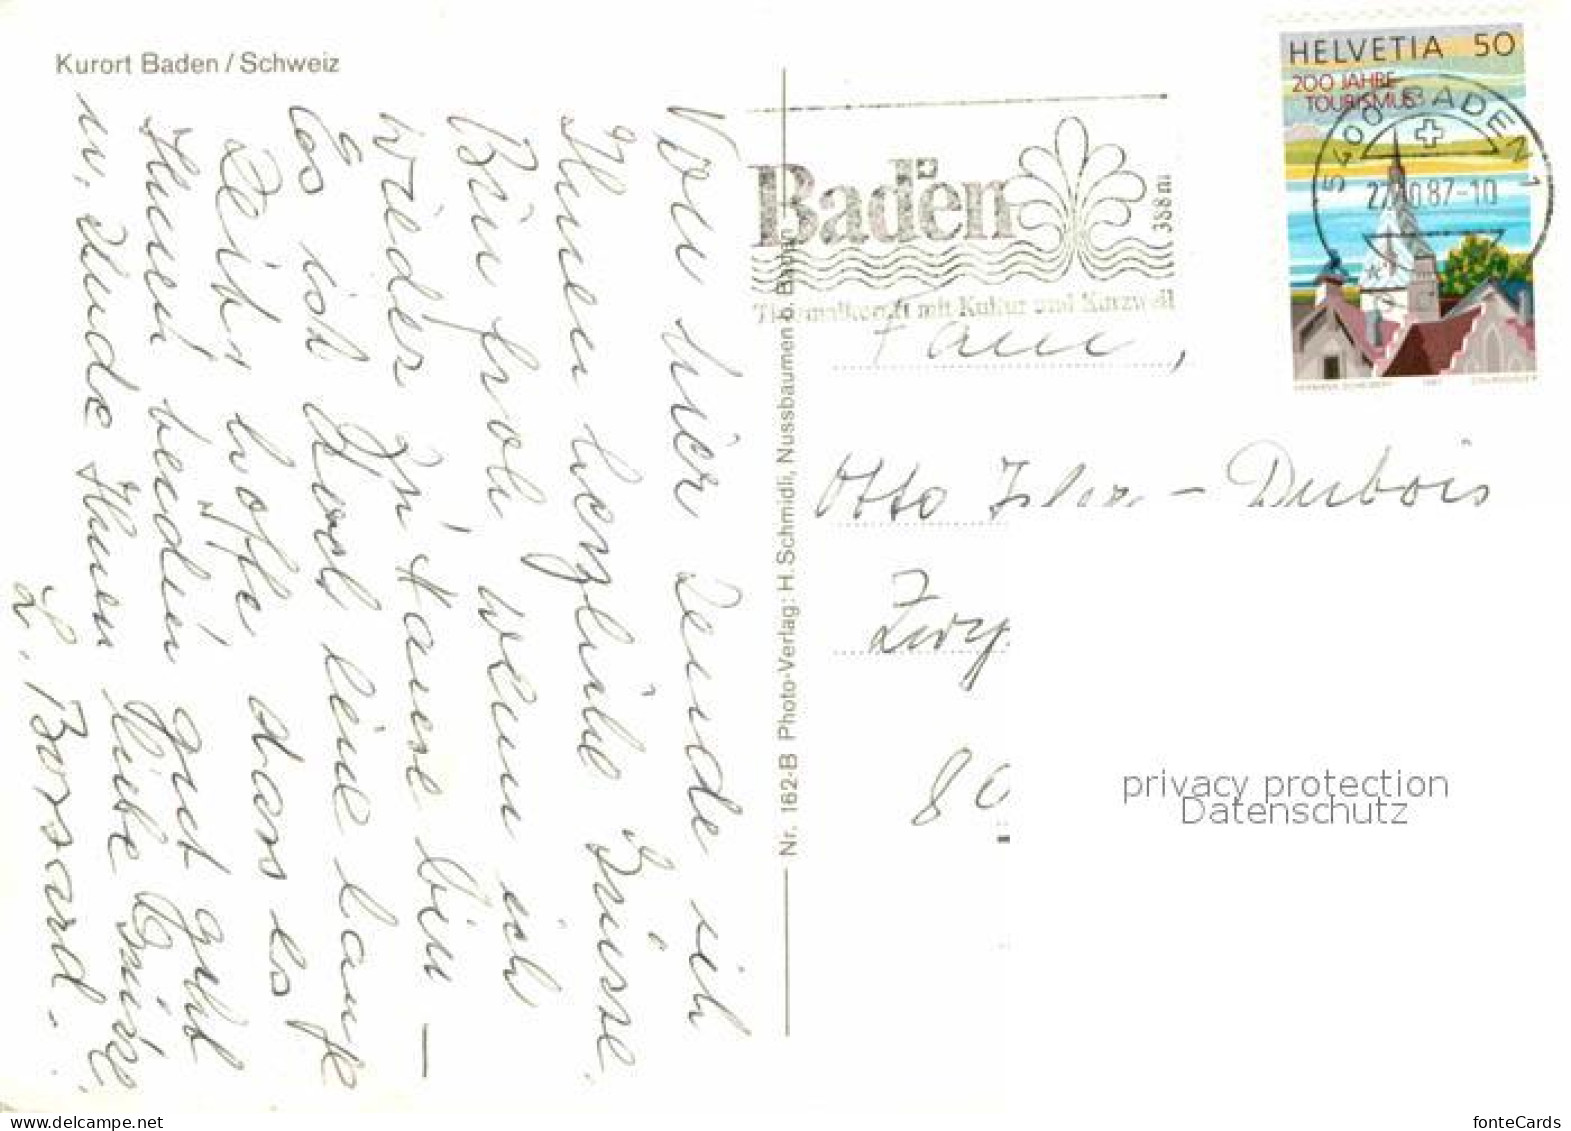 Kurort Baden / Schweiz
Von hier sende ich
Ihnen herzliche Grüsse.
Bin froh wenn ich
wieder zu Hause bin –
Es ist doch eine lange
Zeit, hoffe dass es
Ihnen beiden gut geht
u. sende Ihnen liebe Grüsse
L. Bossard.
Nr. 162-B Photo-Verlag: H. Schmidli, Nussbaumen b. Baden
Baden
358 m
Thermalkurort mit Kultur und Kurzweil
HELVETIA 50
200 JAHRE
TOURISMUS
5400 BADEN 1
27.10.87-10
Fam,
Otto Isler - Dubois
80
privacy protection
Datenschutz
fonteCards